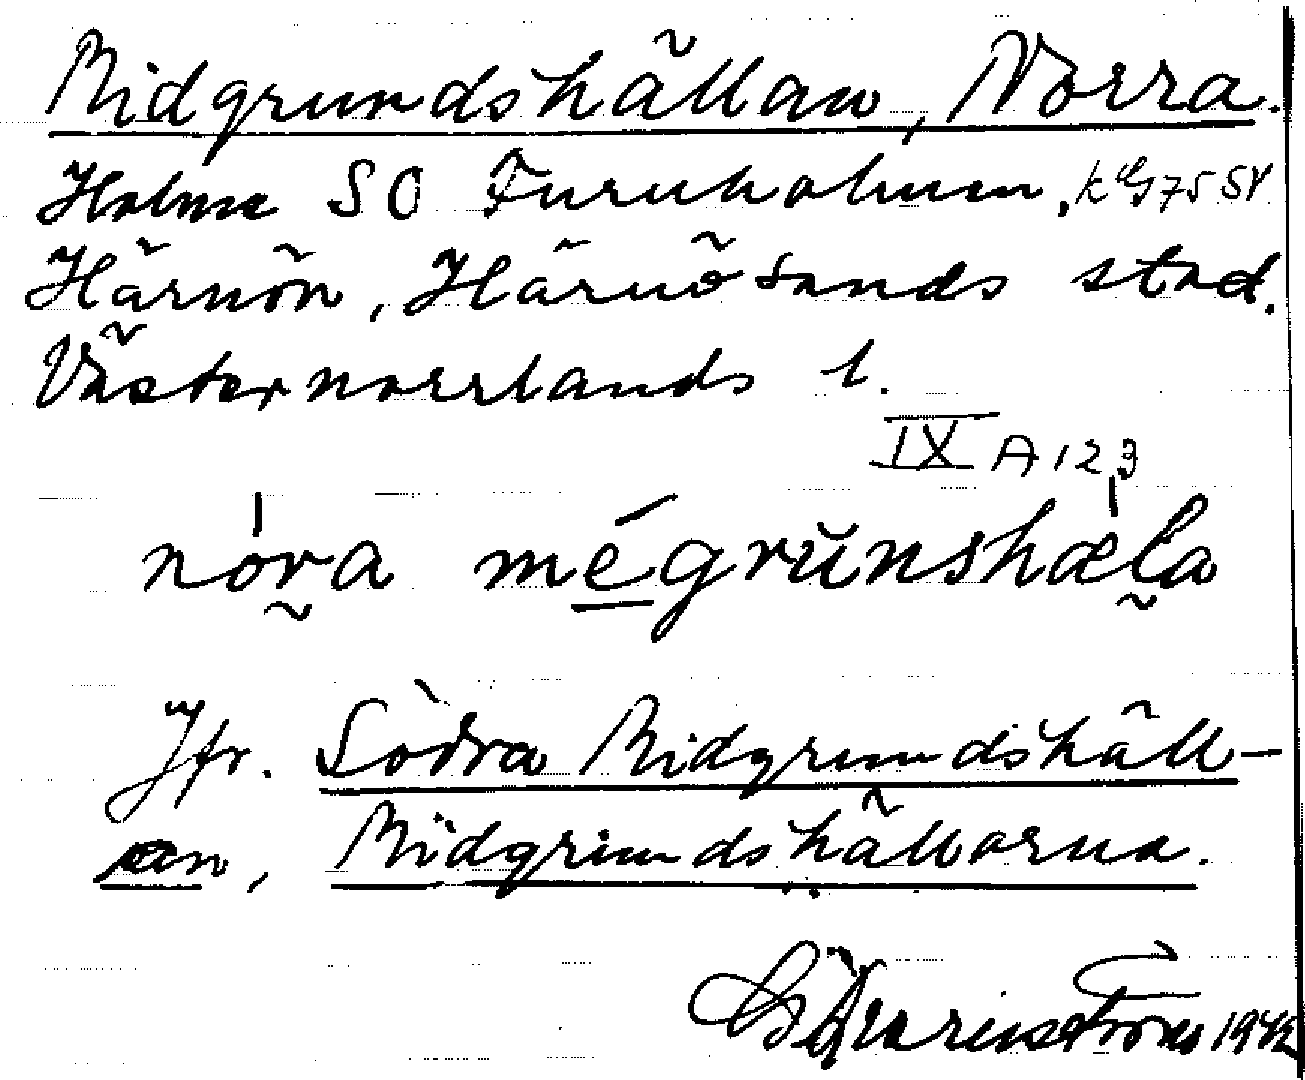 Midgrundshällan, Norra.
Holme SO Furuholmen, kG75SV
Härnön, Härnösands stad.
Västernorrlands l.
IX A123
nóra mégrŭnshæla
Jfr. Södra Midgrundshäll-
an, Midgrundshällarna.
1942